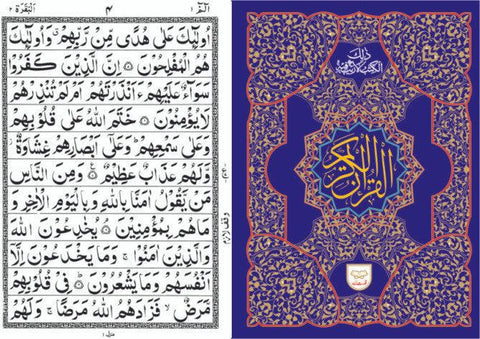 الٓمّٓ ١
٤
اَلْبَقَرَة ٢
اُولٰٓئِكَ عَلٰى هُدًى مِّنْ رَّبِّهِمْ وَاُولٰٓئِكَ
هُمُ الْمُفْلِحُوْنَ ۝ اِنَّ الَّذِيْنَ كَفَرُوْا
سَوَآءٌ عَلَيْهِمْ ءَاَنْذَرْتَهُمْ اَمْ لَمْ تُنْذِرْهُمْ
لَا يُؤْمِنُوْنَ ۝ خَتَمَ اللّٰهُ عَلٰى قُلُوْبِهِمْ
وَعَلٰى سَمْعِهِمْ ؕ وَعَلٰٓى اَبْصَارِهِمْ غِشَاوَةٌ ؗ
وَّلَهُمْ عَذَابٌ عَظِيْمٌ ۝ وَمِنَ النَّاسِ
مَنْ يَّقُوْلُ اٰمَنَّا بِاللّٰهِ وَبِالْيَوْمِ الْاٰخِرِ وَ
مَا هُمْ بِمُؤْمِنِيْنَ ۝ يُخٰدِعُوْنَ اللّٰهَ
وَالَّذِيْنَ اٰمَنُوْا ۚ وَمَا يَخْدَعُوْنَ اِلَّاۤ
اَنْفُسَهُمْ وَمَا يَشْعُرُوْنَ ۝ فِيْ قُلُوْبِهِمْ
مَّرَضٌ ۙ فَزَادَهُمُ اللّٰهُ مَرَضًا ۚ وَلَهُمْ
وقف لازم
منزل ١
القرآن الكريم